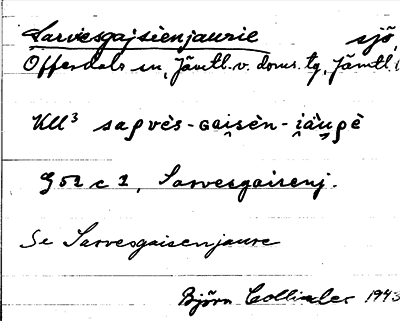 Sarvesgajsienjaurie sjö,
Offerdals sn, Jämtl. v. doms. tg, Jämtl. l
KU³ saρvès-Gai̯sèn-i̯äu̯ρè
G52 c 1, Sarvesgaisenj.
Se Sarvesgaisenjaure
Björn Collinder 1943